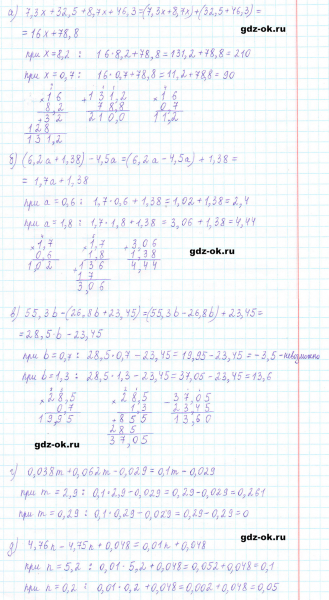 а) 7,3x+32,5+8,7x+46,3=(7,3x+8,7x)+(32,5+46,3)=
=16x+78,8
при x=8,2 : 16·8,2+78,8=131,2+78,8=210
при x=0,7 : 16·0,7+78,8=11,2+78,8=90
×16 +131,2 ×16
8,2 78,8 0,7
+32 210,0 11,2
128
131,2
gdz-ok.ru
б) (6,2a+1,38)-4,5a=(6,2a-4,5a)+1,38=
=1,7a+1,38
при a=0,6 : 1,7·0,6+1,38=1,02+1,38=2,4
при a=1,8 : 1,7·1,8+1,38=3,06+1,38=4,44
×1,7 ×1,7 +3,06
0,6 1,8 1,38
1,02 +136 4,44
17
3,06
gdz-ok.ru
в) 55,3b-(26,8b+23,45)=(55,3b-26,8b)+23,45=
=28,5·b-23,45
при b=0,7 : 28,5·0,7-23,45=19,95-23,45=-3,5-невозможно
при b=1,3 : 28,5·1,3-23,45=37,05-23,45=13,6
×28,5 ×28,5 -37,05
0,7 1,3 23,45
19,95 +855 13,60
285
37,05
gdz-ok.ru
г) 0,038m+0,062m-0,029=0,1m-0,029
при m=2,9 : 0,1·2,9-0,029=0,29-0,029=0,261
при m=0,29 : 0,1·0,29-0,029=0,029-0,029=0
gdz-ok.ru
д) 4,76n-4,75n+0,048=0,01n+0,048
при n=5,2 : 0,01·5,2+0,048=0,052+0,048=0,1
при n=0,2 : 0,01·0,2+0,048=0,002+0,048=0,05
gdz-ok.ru